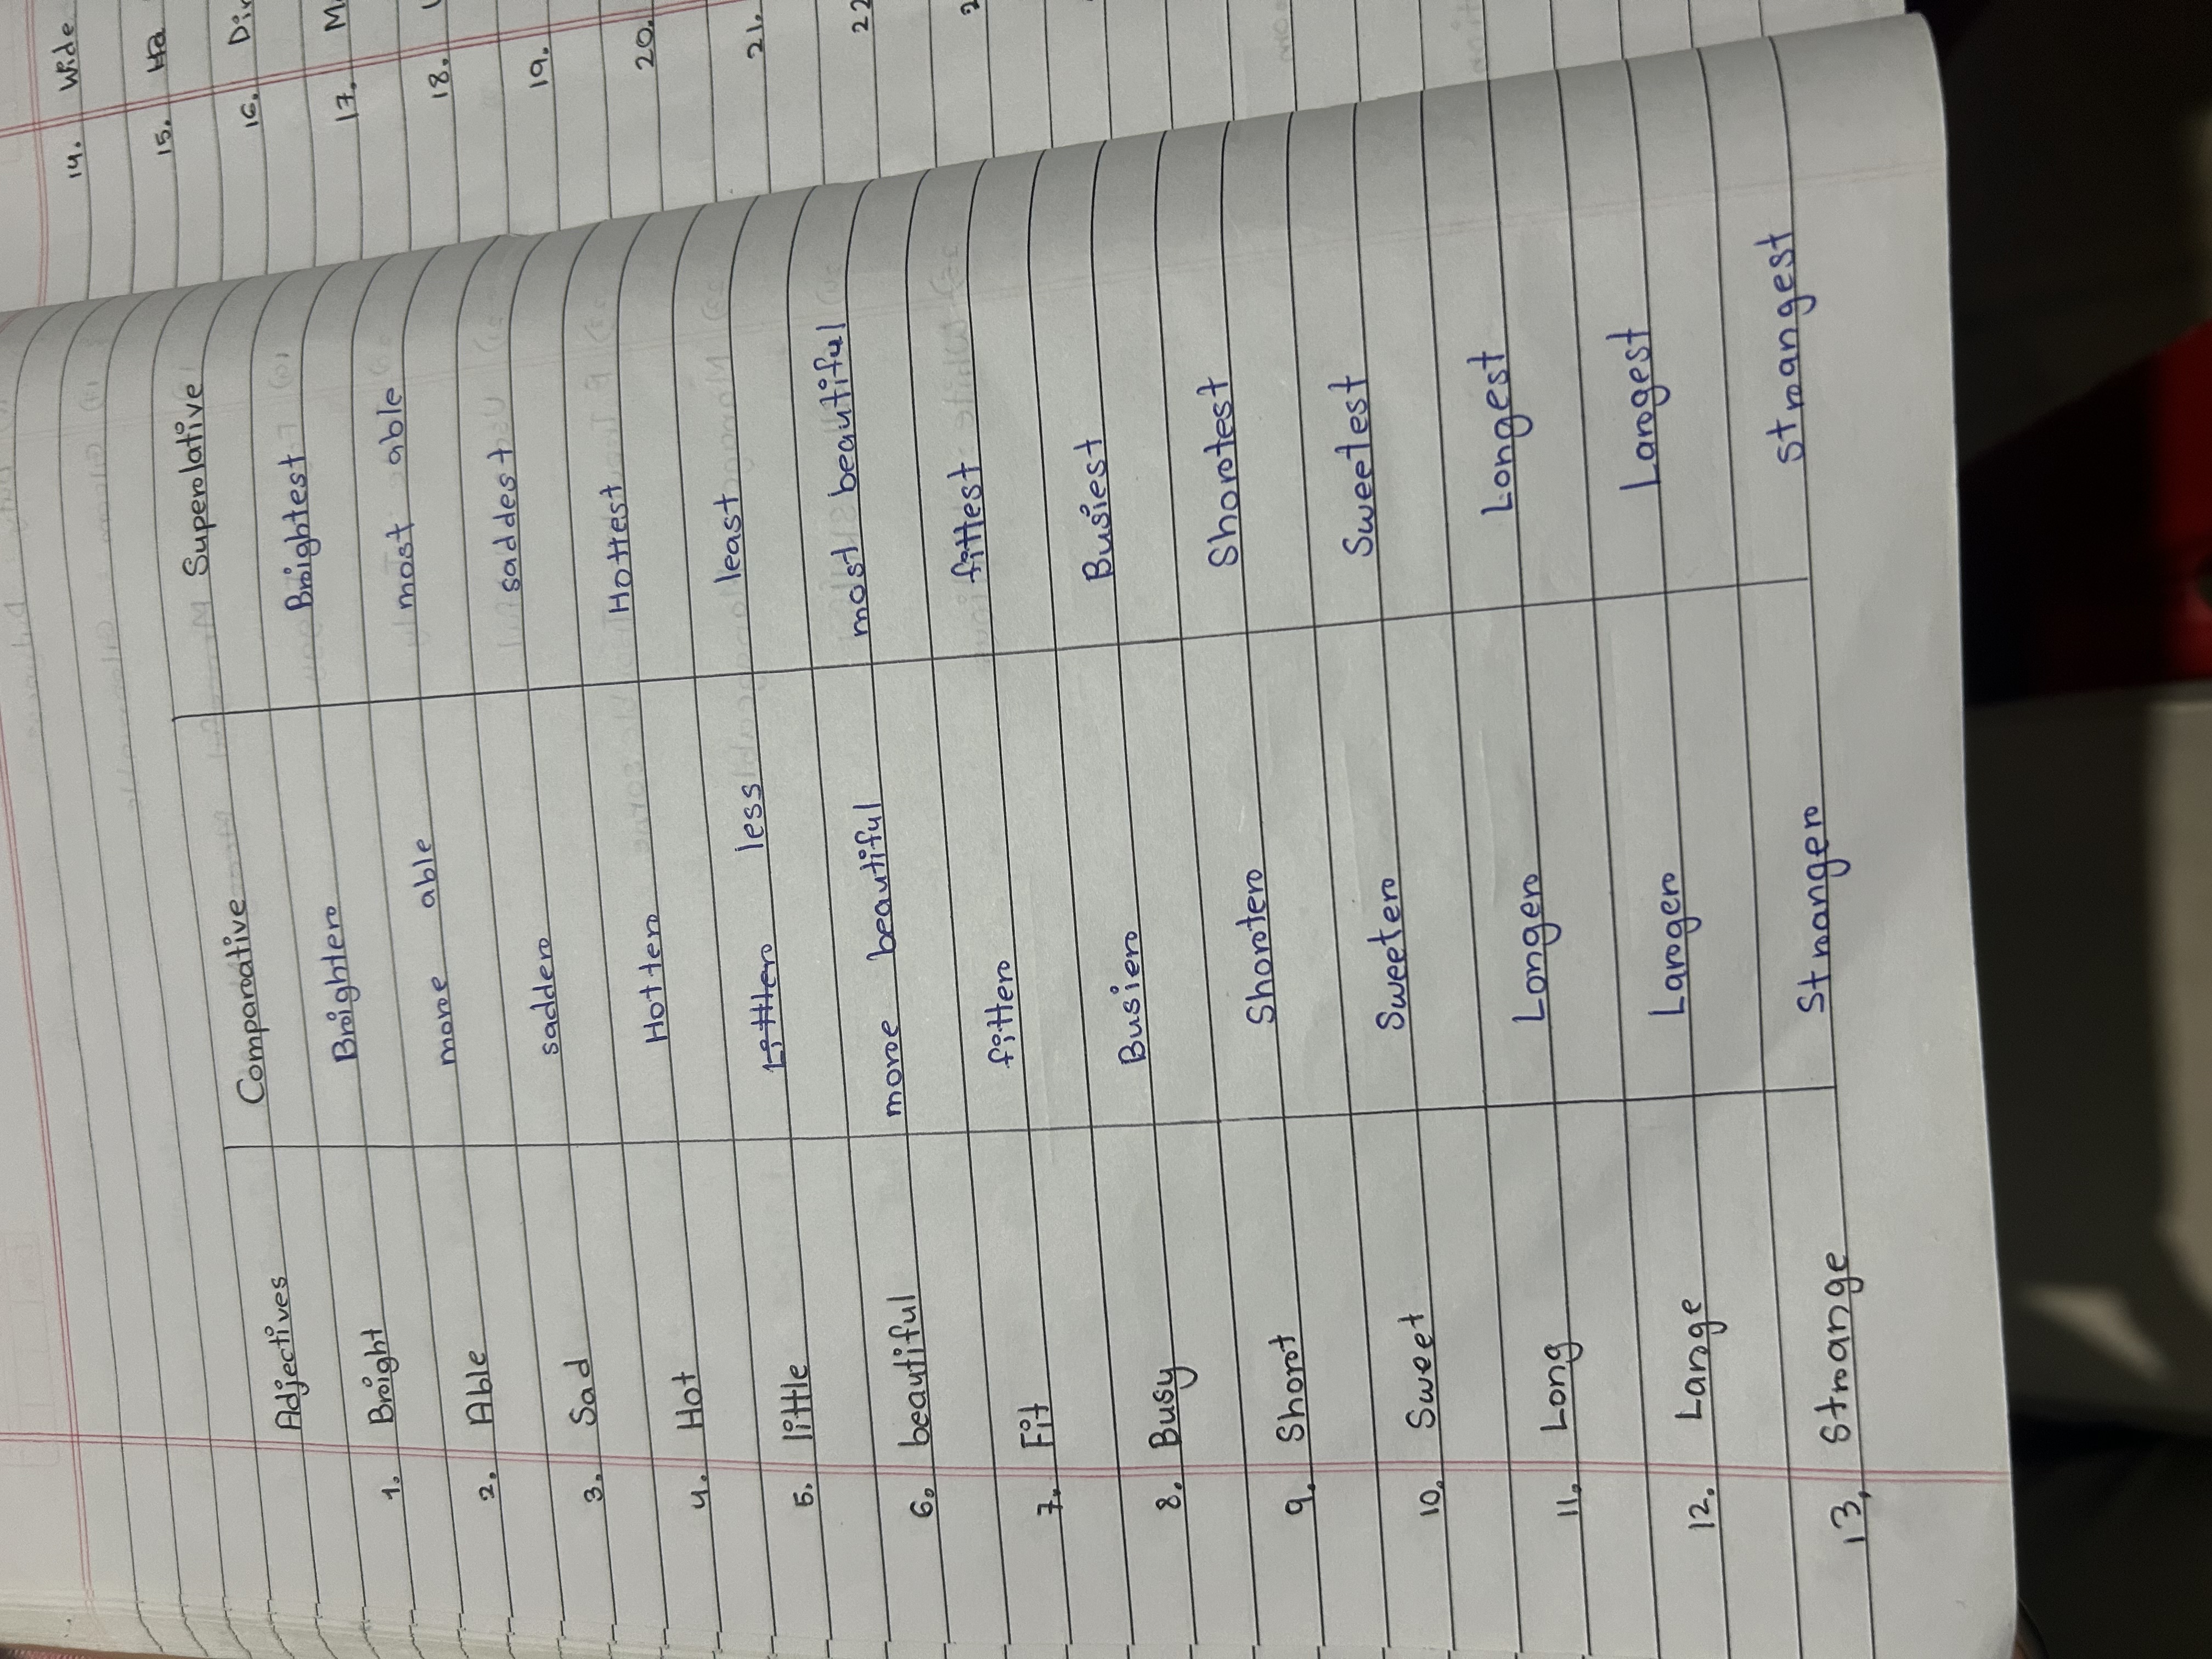 Adjectives Comparative Superlative
1. Bright Brighter Brightest
2. Able more able most able
3. Sad sadder saddest
4. Hot Hotter Hottest
5. little Litter less least
6. beautiful more beautiful most beautiful
7. Fit fitter fittest
8. Busy Busier Busiest
9. Short Shorter Shortest
10. Sweet Sweeter Sweetest
11. Long Longer Longest
12. Large Larger Largest
13. Strange Stranger Strangest
14. Wide
15.
16.
17.
18.
19.
20.
21.